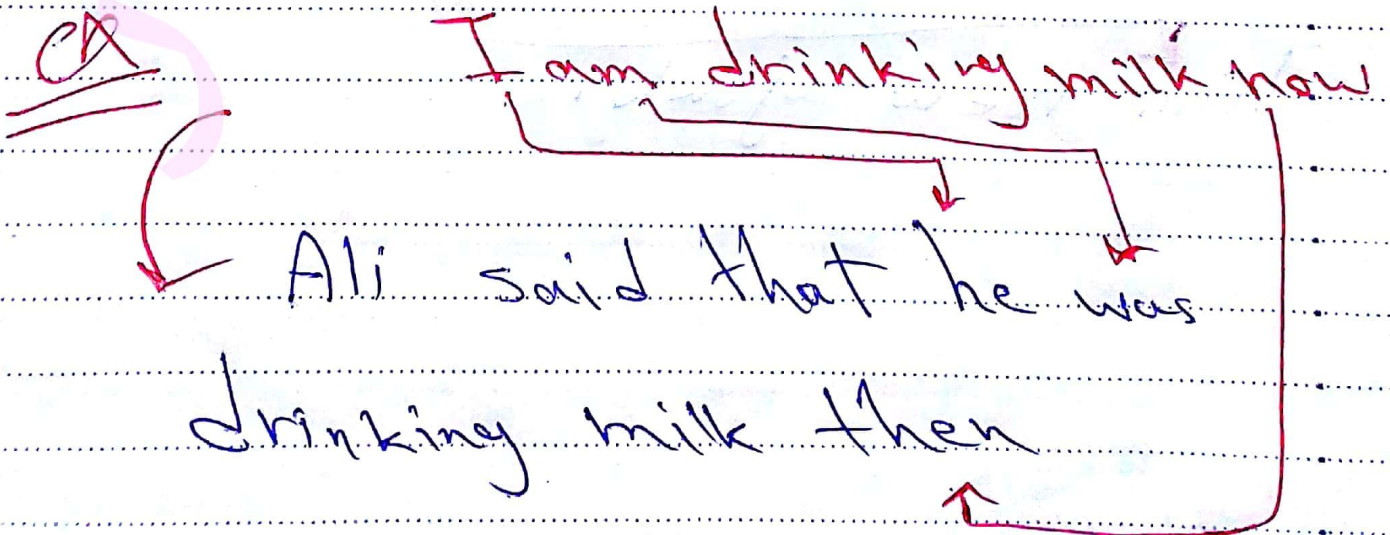 I am drinking milk now
Ali said that he was
drinking milk then